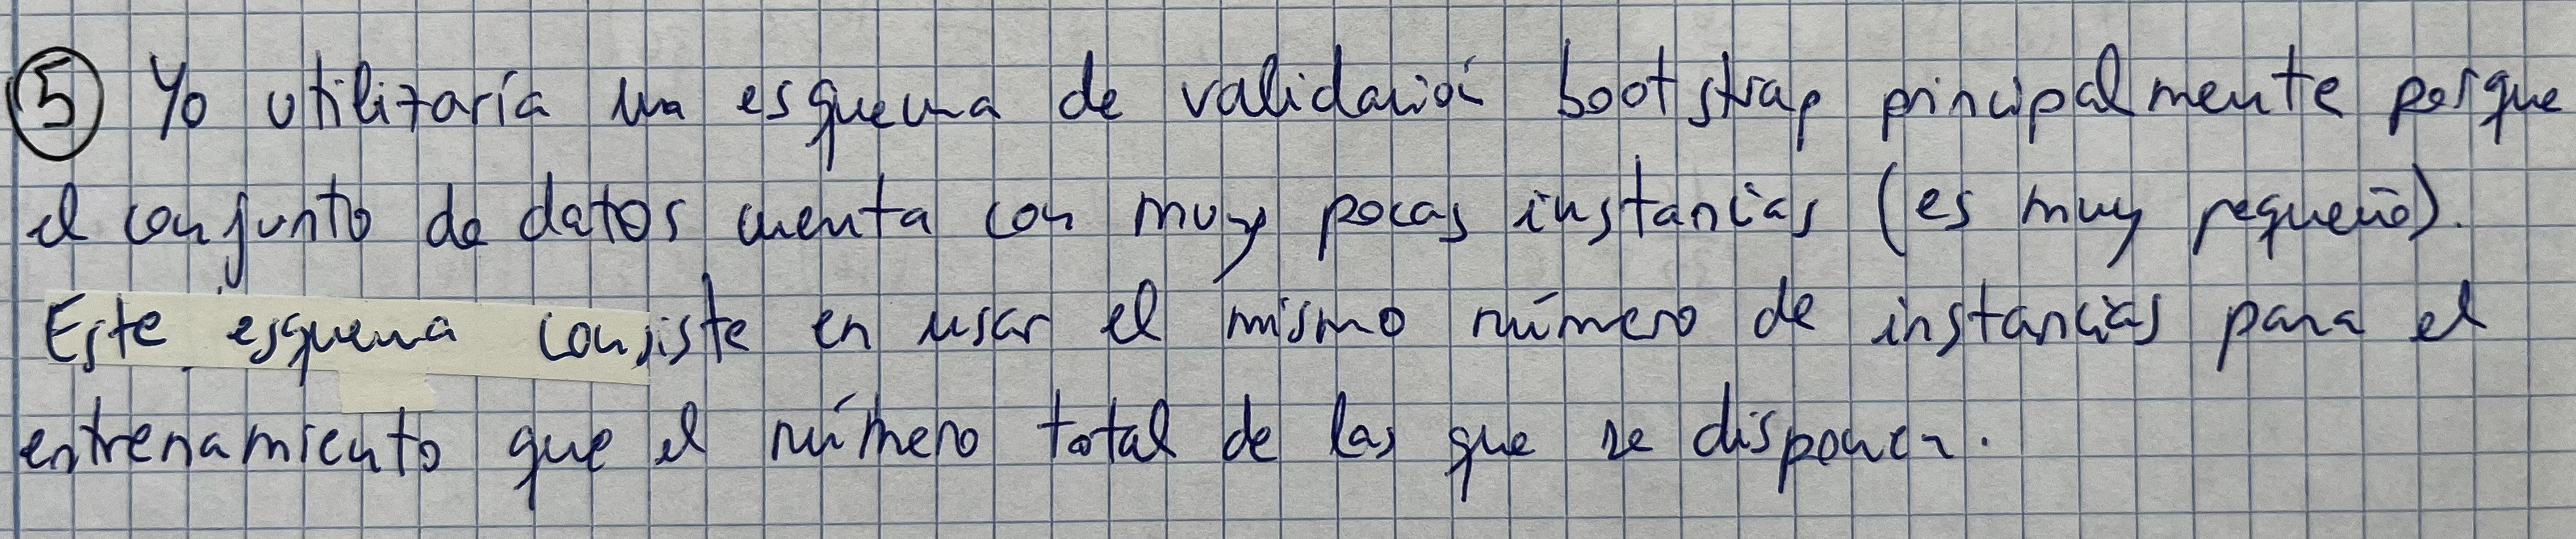 5 Yo utilizaría un esquema de validación bootstrap principalmente porque
el conjunto de datos cuenta con muy pocas instancias (es muy pequeño).
Este esquema consiste en usar el mismo número de instancias para el
entrenamiento que el número total de las que se disponen.